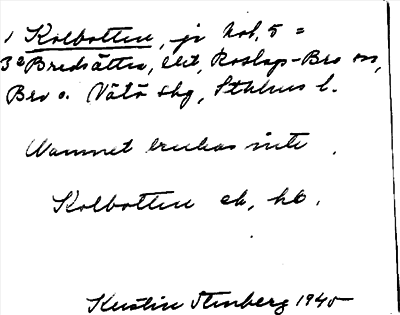 1 Kolbotten, jr hok, 5 =
3² Bredsätter, elit, Roslags-Bro sn,
Bro o. Vätö skg, Sthlms l.
Namnet brukas inte.
Kolbotten ek, hb.
Kerstin Stenberg 1945